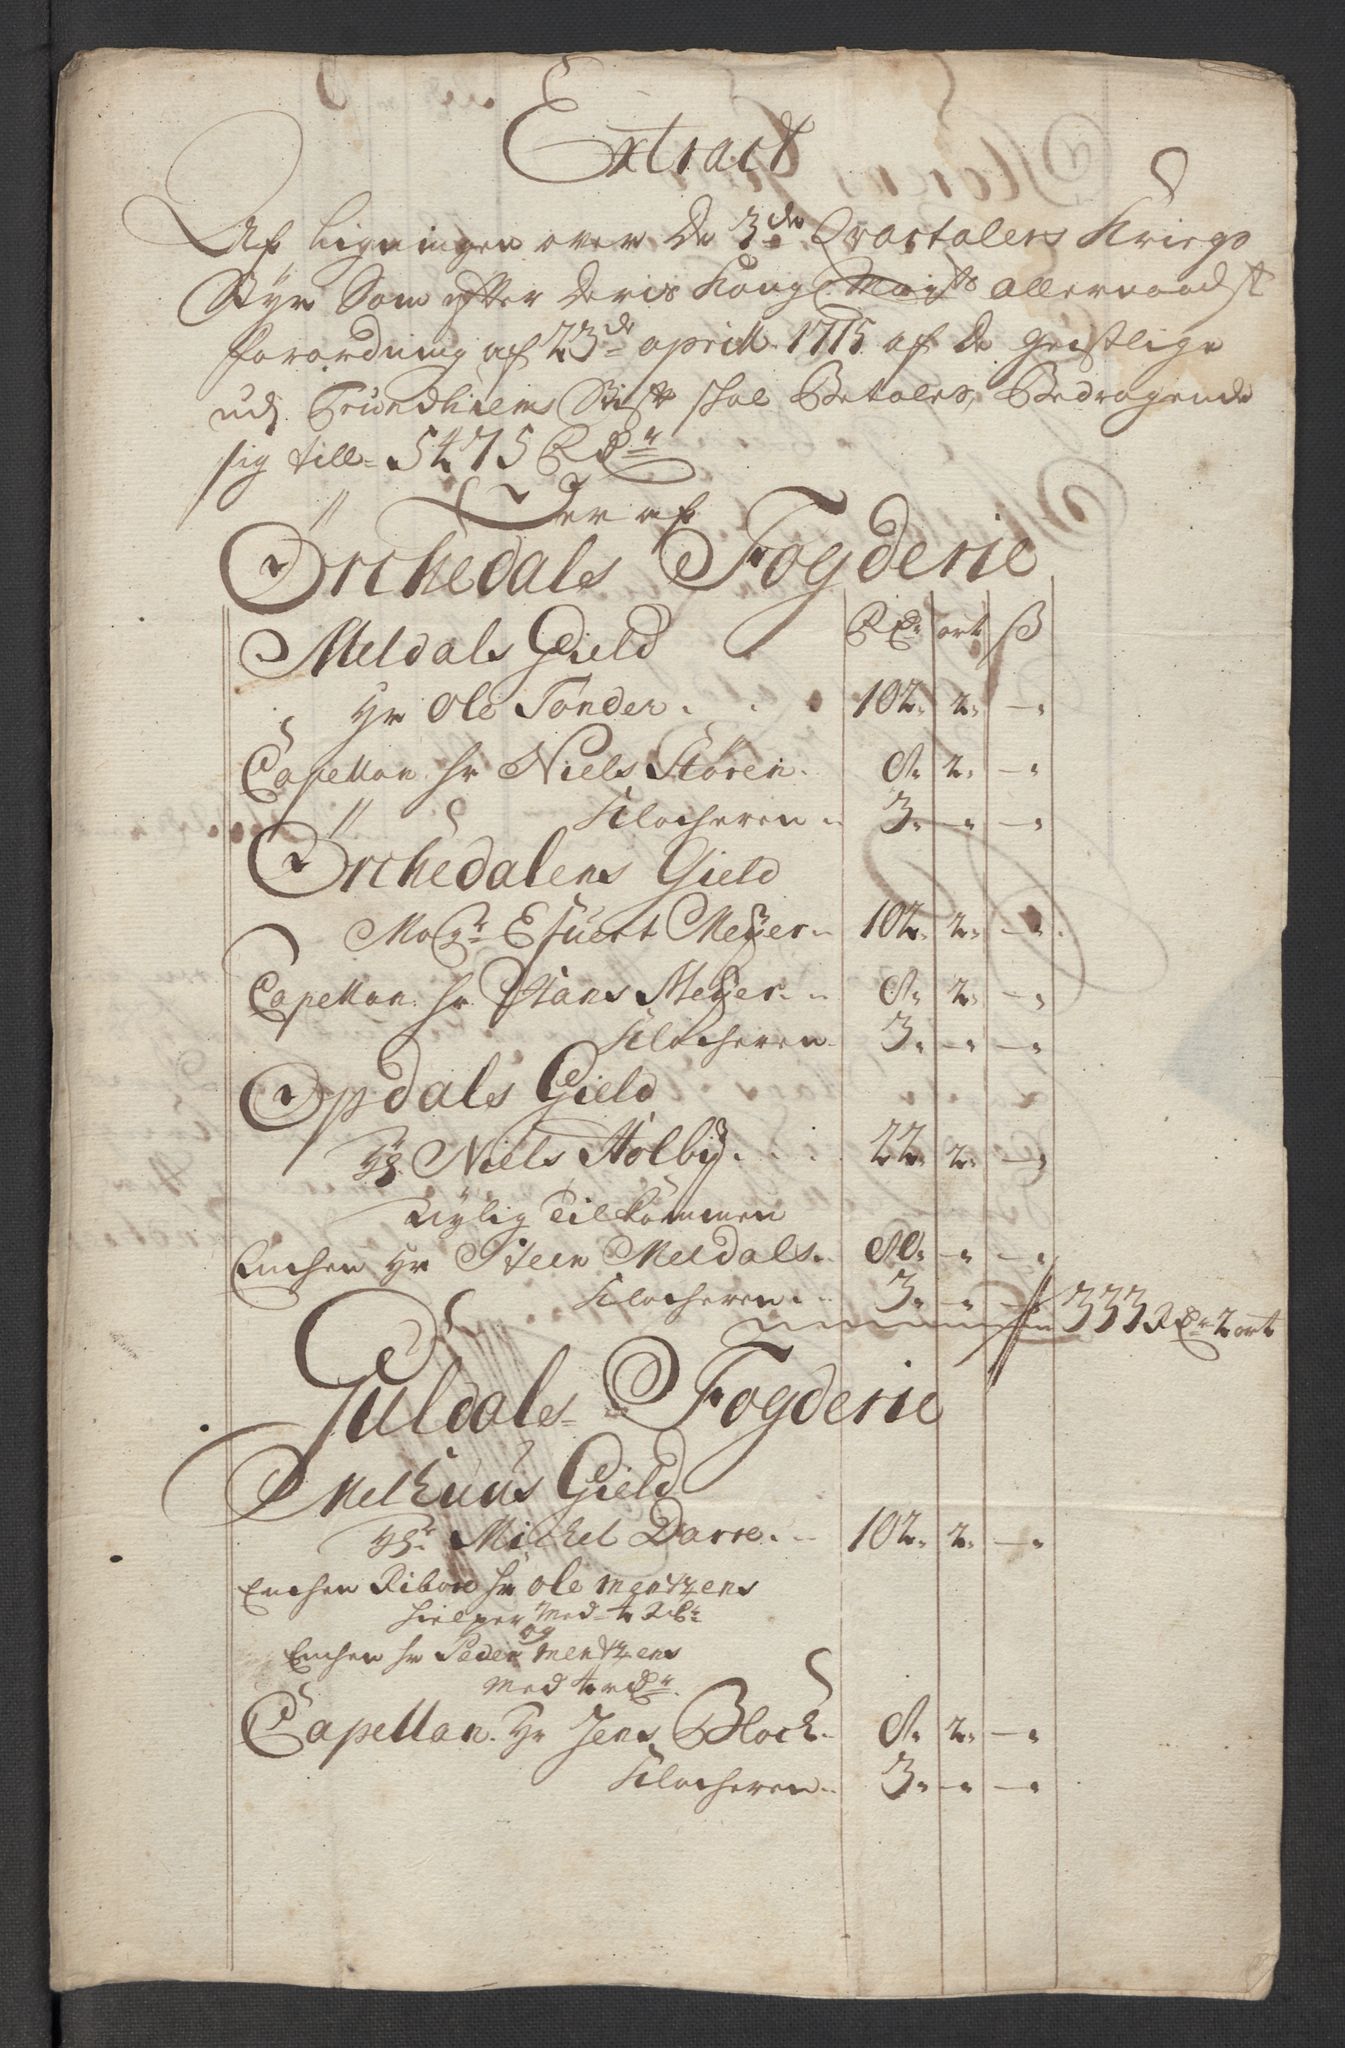 Extract
Af Ligningen over De 3de Qvartalers Kriegs
Styr Som efter Deris Kongl Mayts allernaadst
forordning af 23de aprill 1715 af de geistlige
udj Trundhiems Stift skal Betales, Bedragende
sig till 5475 Rdr
Der af
Örchedals Fogderie
Meldals Gield Rdr ort ß
Hr Ole Tonder 102 2 —
Capellan hr Niels Stören 8 2 —
Klocheren 3 — —
Örchedalens Gield
Magr Esuert Meÿer 102 2 —
Capellan hr Hans Meÿer 8 2 —
Klocheren 3 — —
Opdals Gield
Hr Niels Stolbÿ 22 2 —
Nylig Tilkommen
Enchen Hr Steen Meldals 80 — —
Klocheren 3 — — 333 Rdr 2 ort
Guldals Fogderie
Melhuus Gield
Hr Michel Darre 102 2 —
Enchen Ribore hr Ole Mentzens
hielper Med
og
Enchen hr Peder Mentzens
Med
Capellan Hr Jens Block 8 2 —
Klocheren 3 — —